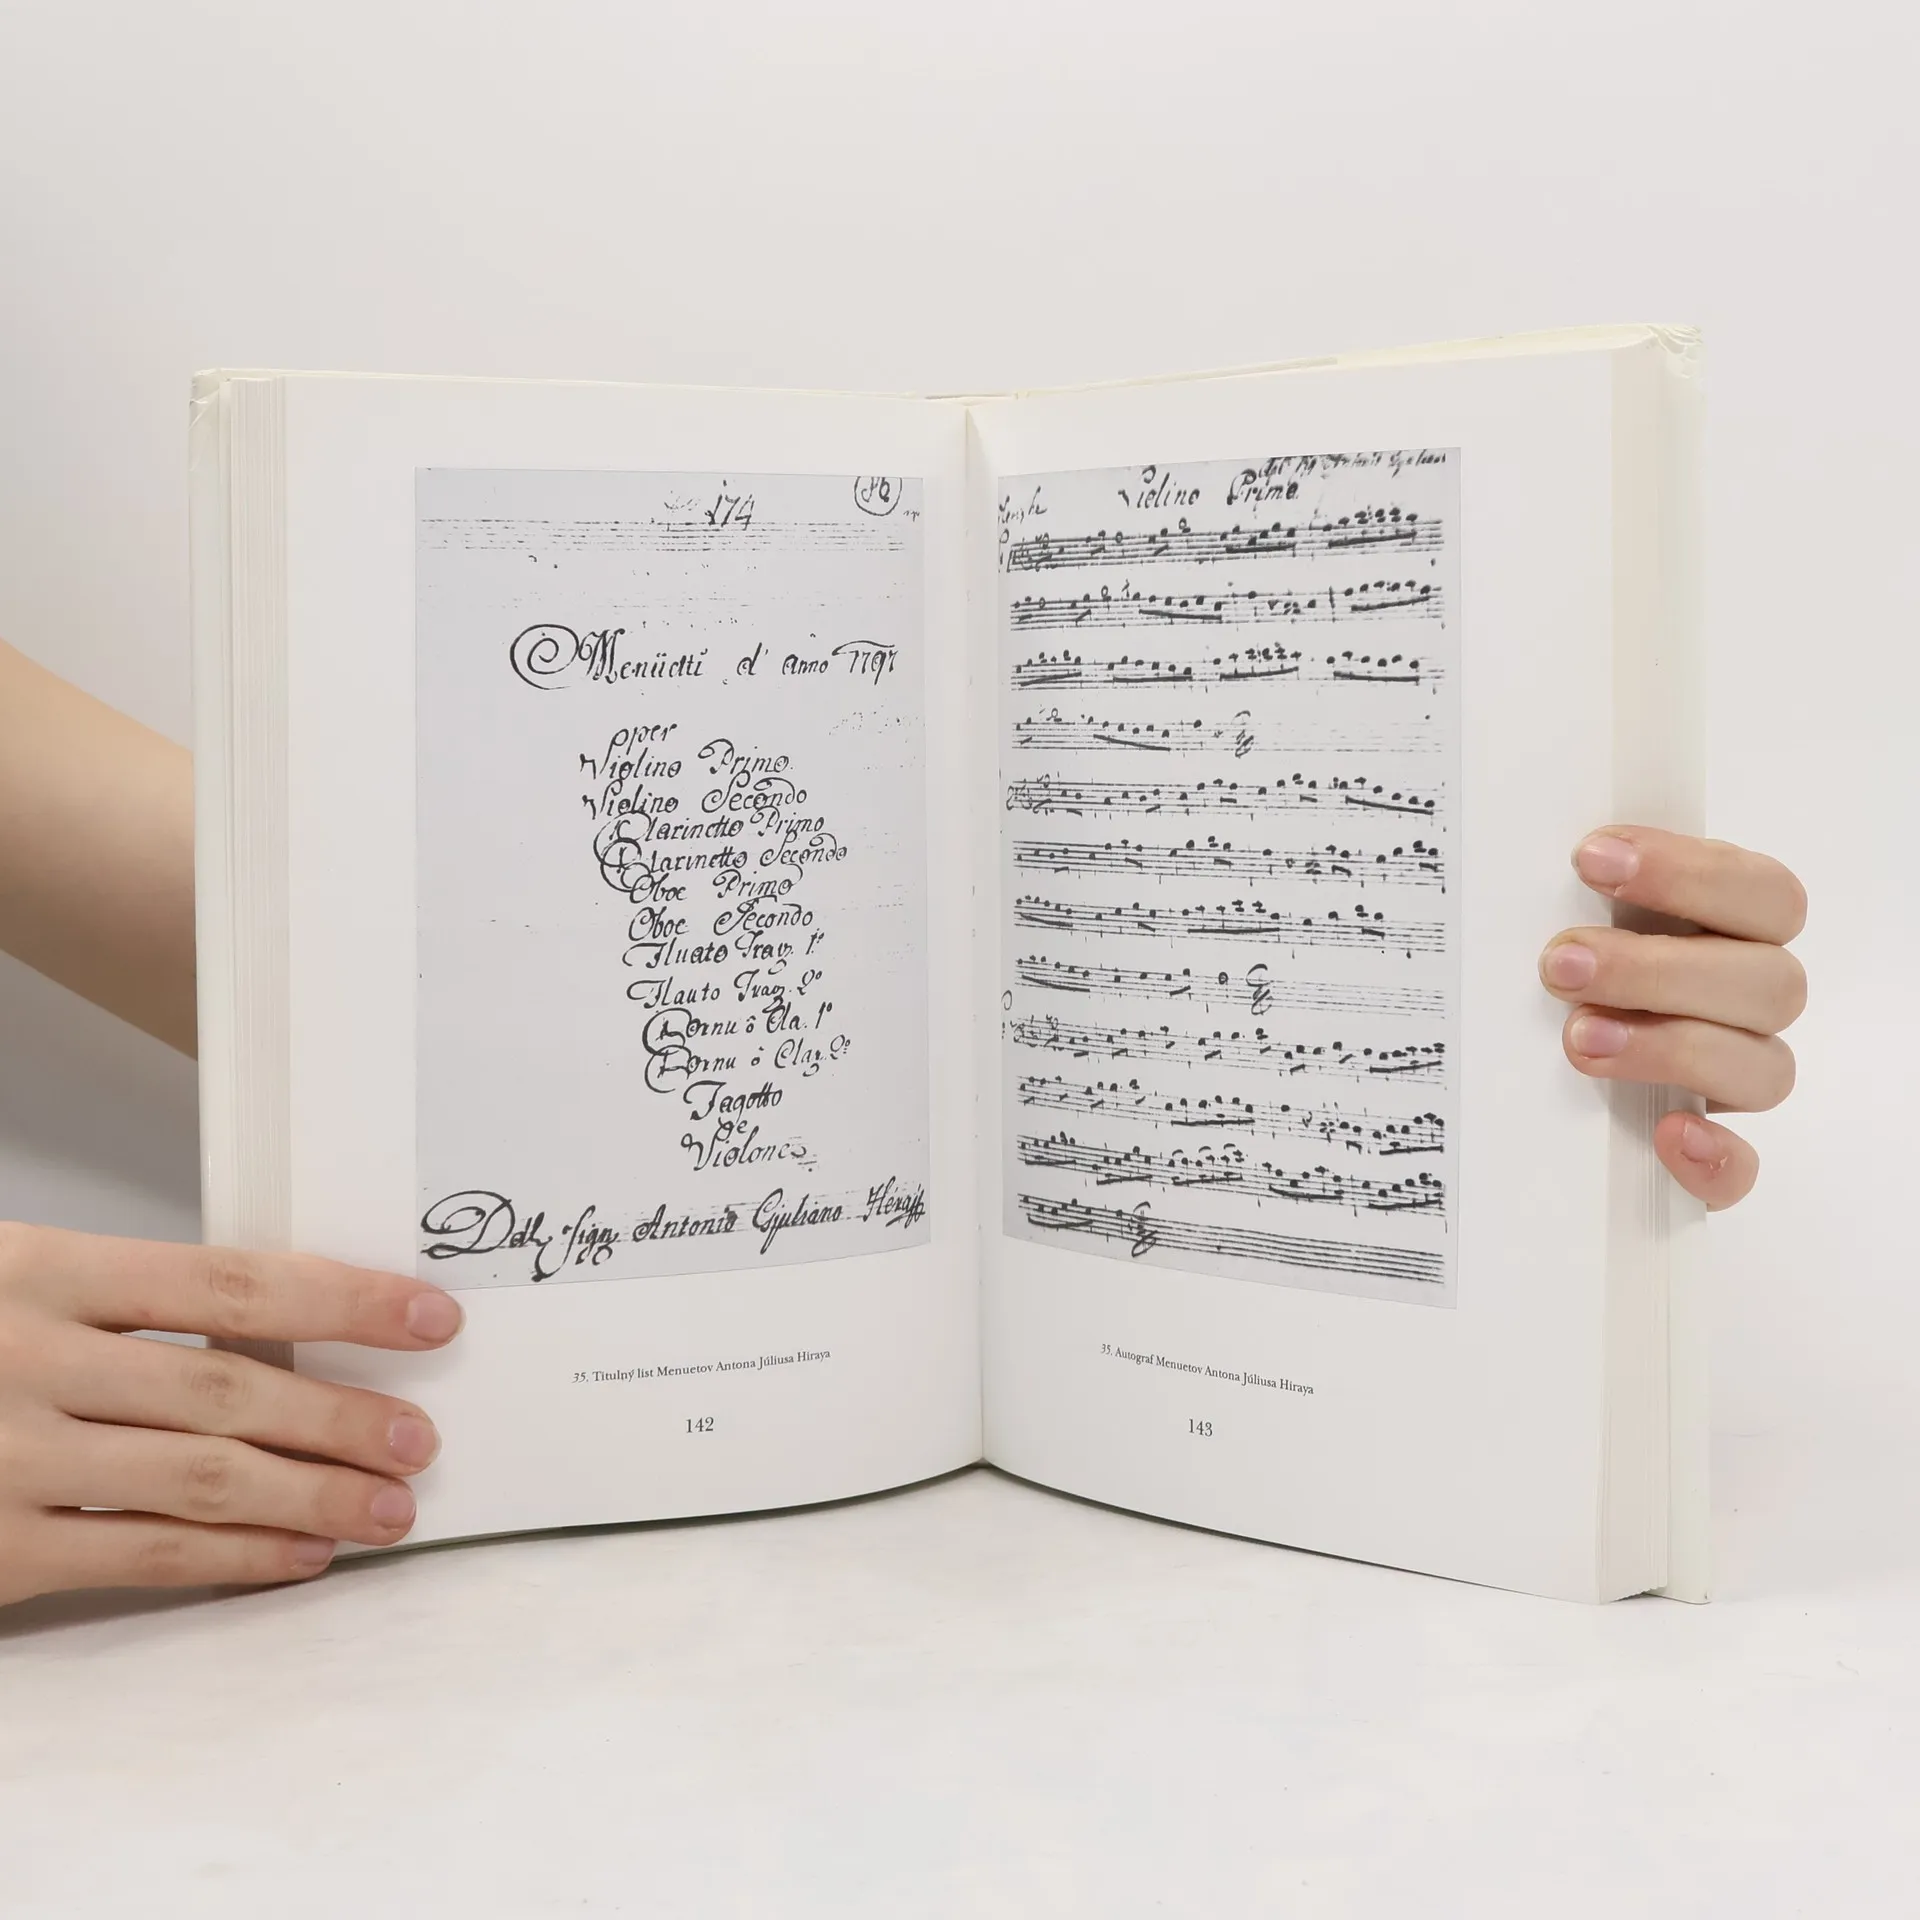 174
Menüetti d' Anno 1797
per
Violino Primo.
Violino Secondo
Clarinetto Primo
Clarinetto Secondo
Oboe Primo
Oboe Secondo
Fluato Trav. 1º
Flauto Trav. 2º
Cornu ô Cla. 1º
Cornu ô Clar. 2º
Fagotto
e
Violone
Dell Sign Antonio Gjuliano Hėraÿ
35. Titulný list Menuetov Antona Júliusa Hiraya
142
Violino Primo
35. Autograf Menuetov Antona Júliusa Hiraya
143